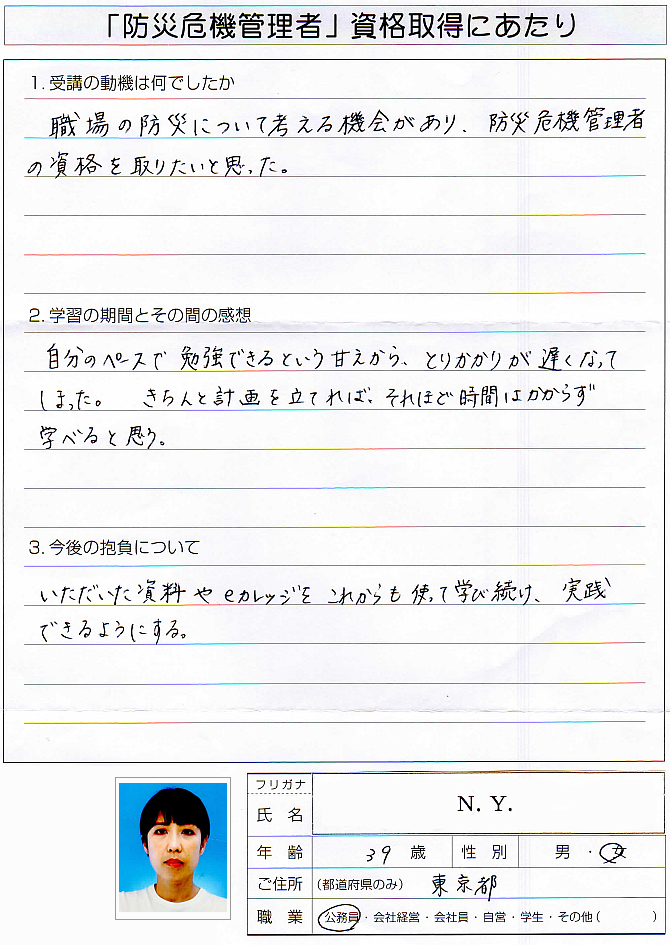 「防災危機管理者」資格取得にあたり
1. 受講の動機は何でしたか
職場の防災について考える機会があり、防災危機管理者
の資格を取りたいと思った。
2. 学習の期間とその間の感想
自分のペースで勉強できるという甘えから、とりかかりが遅くなって
しまった。 きちんと計画を立てれば、それほど時間はかからず
学べると思う。
3. 今後の抱負について
いただいた資料やeカレッジをこれからも使って学び続け、実践
できるようにする。
フリガナ
氏 名 N. Y.
年 齢 39 歳 性 別 男 ・ 女
ご住所 (都道府県のみ) 東京都
職 業 公務員・会社経営・会社員・自営・学生・その他( )